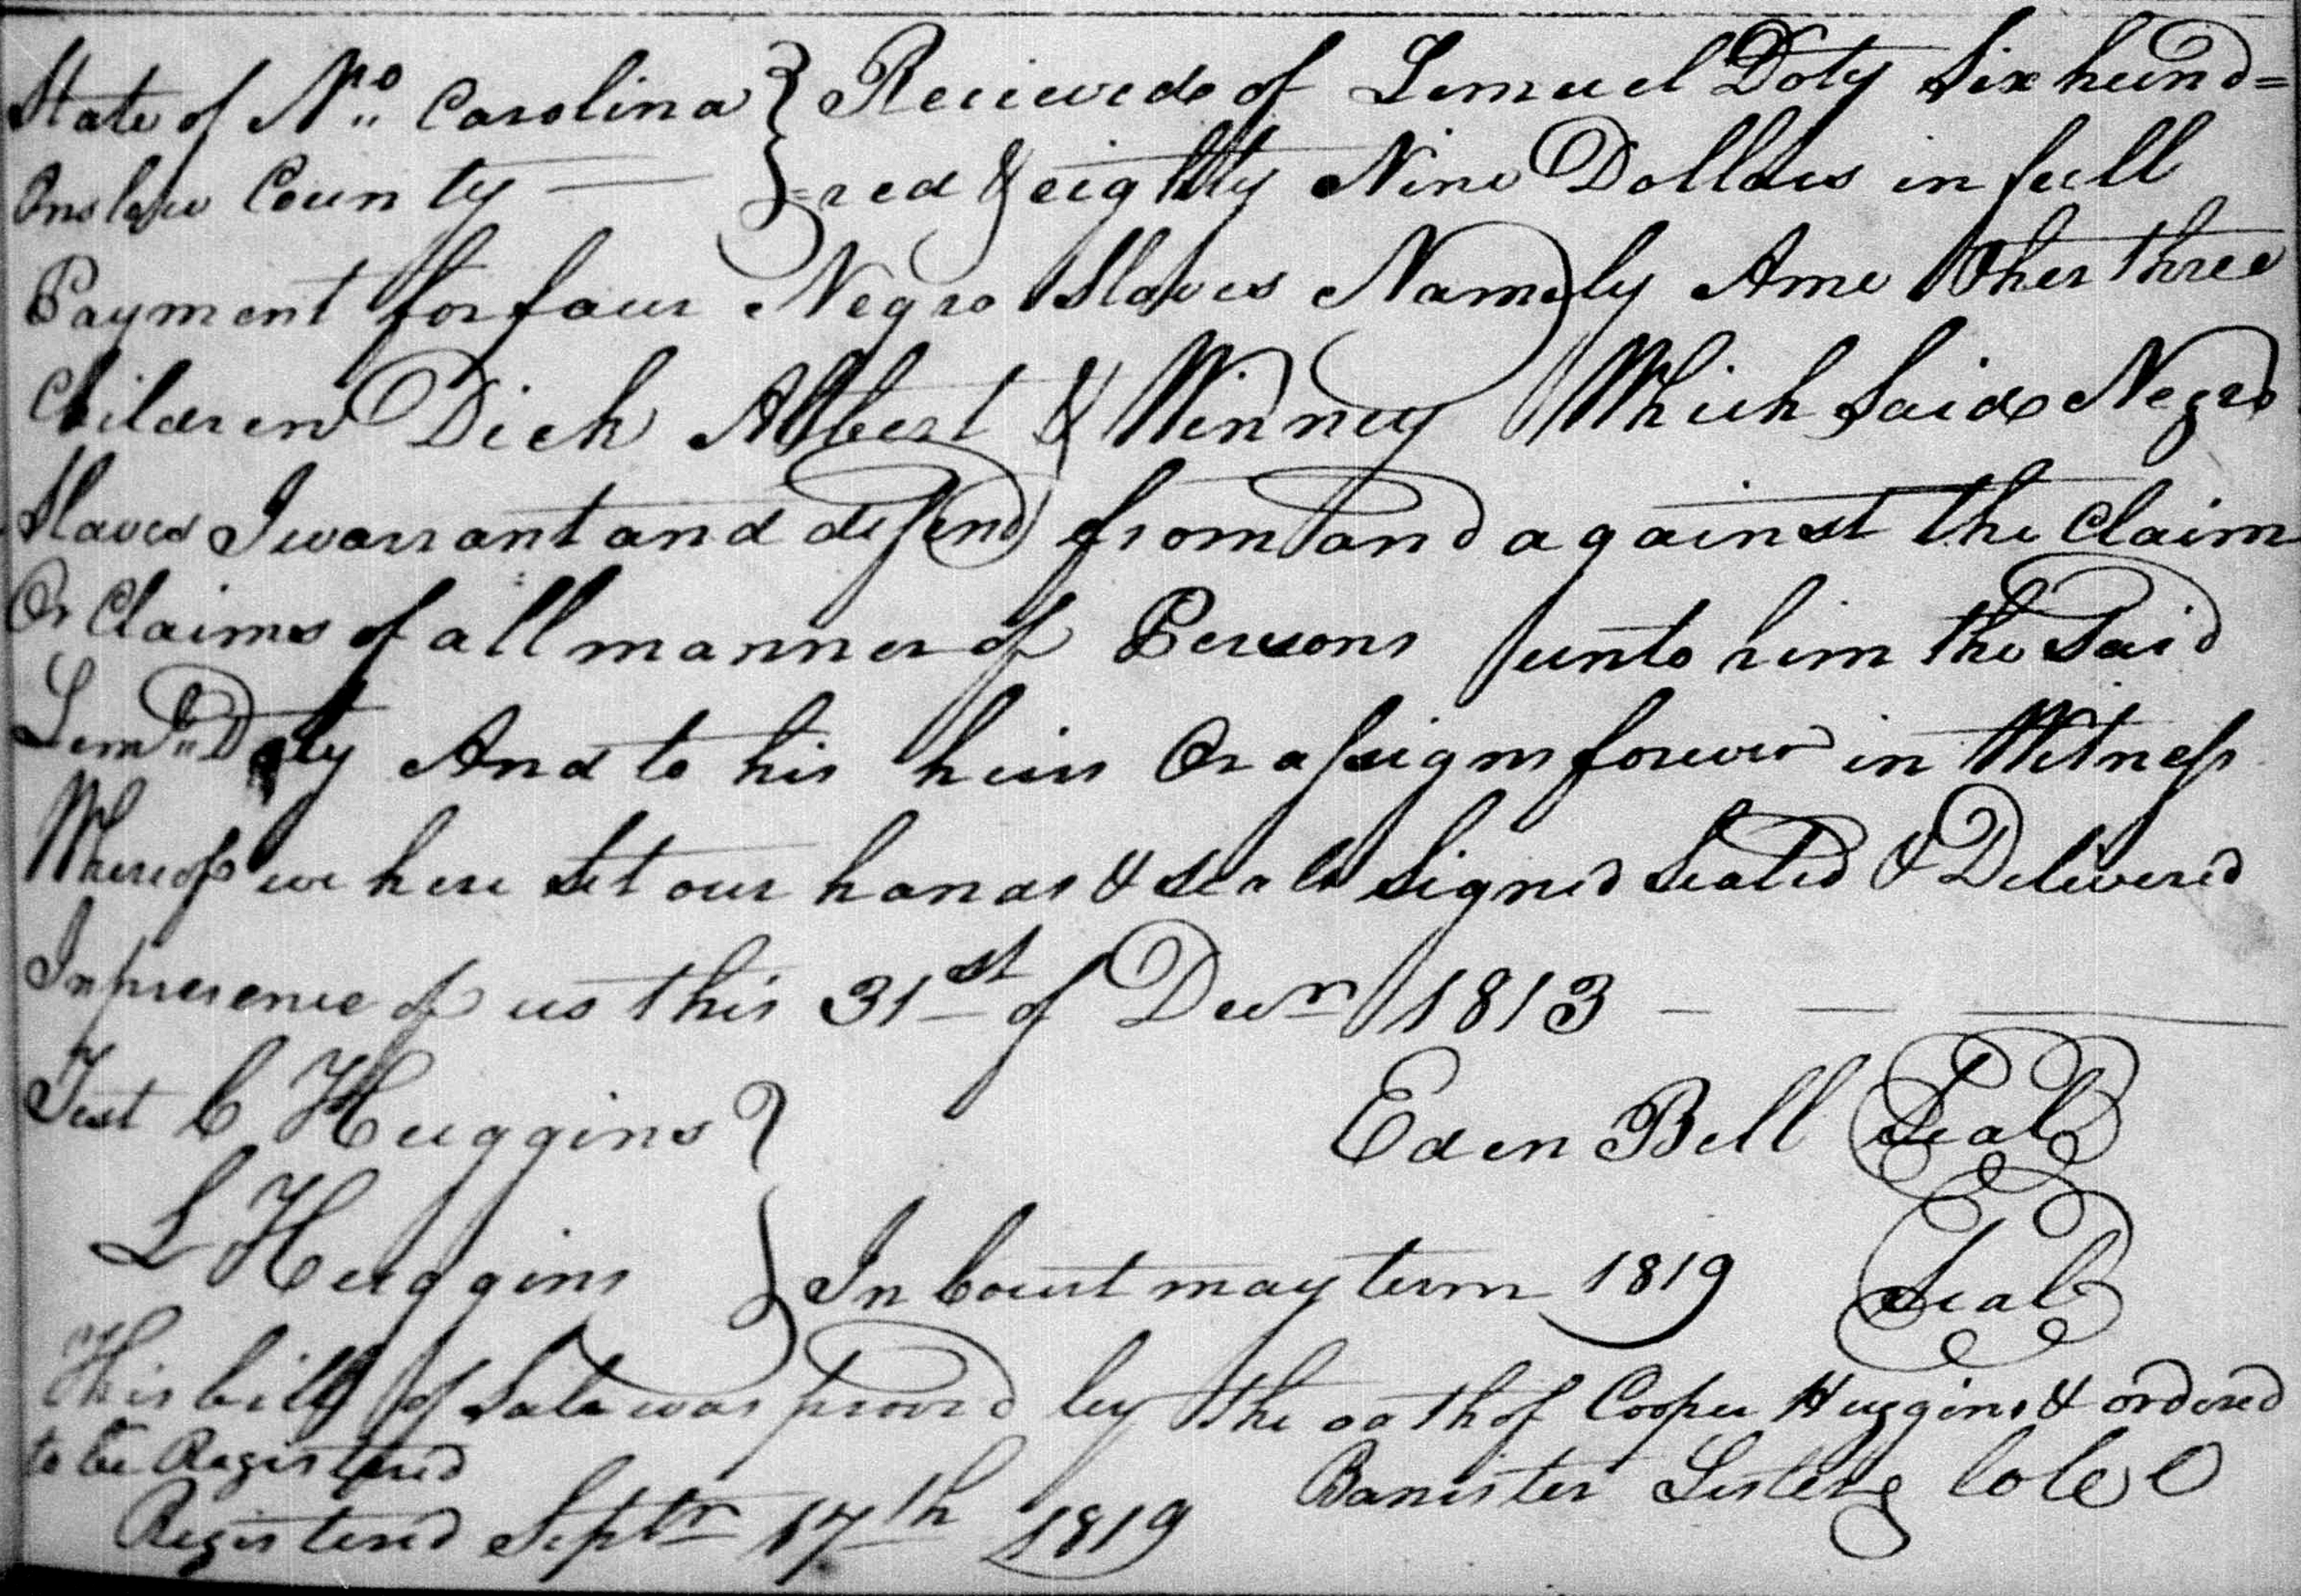 State of No. Carolina } Recieved of Lemuel Doty Six hund=
Onslow County — } =red & eighty Nine Dollars in full
Payment for four Negro Slaves Namely Ame & her three
Children Dick Albert & Winney Which Said Negro
Slaves I warrant and defend from and against the Claim
Or Claims of all manner of Persons unto him the Said
Leml. Doty And to his heirs Or assigns forever in Witness
Whereof we here Set our hands & seals Signed Sealed & Delivered
In presence of us this 31st of Decr 1813 — — —
Test C Huggins } Eden Bell Seal
L Huggins } In Court may term 1819 Seal
This bill of Sale was proved by the oath of Cooper Huggins & ordered
to be Registered
Banister Lester
Registered Septr 17th 1819